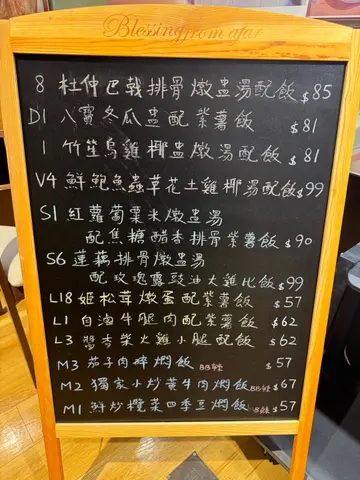 Blessing from afar
8 杜仲巴戟排骨燉盅湯配飯 $85
D1 八寶冬瓜盅配紫薯飯 $81
1 竹笙烏雞椰盅燉湯配飯 $81
V4 鮮鮑魚蟲草花土雞椰湯配飯 $99
S1 紅蘿蔔粟米燉盅湯
配焦糖醋香排骨紫薯飯 $90
S6 蓮藕排骨燉盅湯
配玫瑰露豉油大雞比飯 $99
L18 姬松茸燉蛋配紫薯飯 $57
L1 自滷牛腿肉配紫薯飯 $62
L3 醬香柴火雞小腿配飯 $62
M3 茄子肉碎燜飯 BB鞋 $57
M2 獨家小炒黃牛肉燜飯 $67
M1 鮮炒欖菜四季豆燜飯 $57